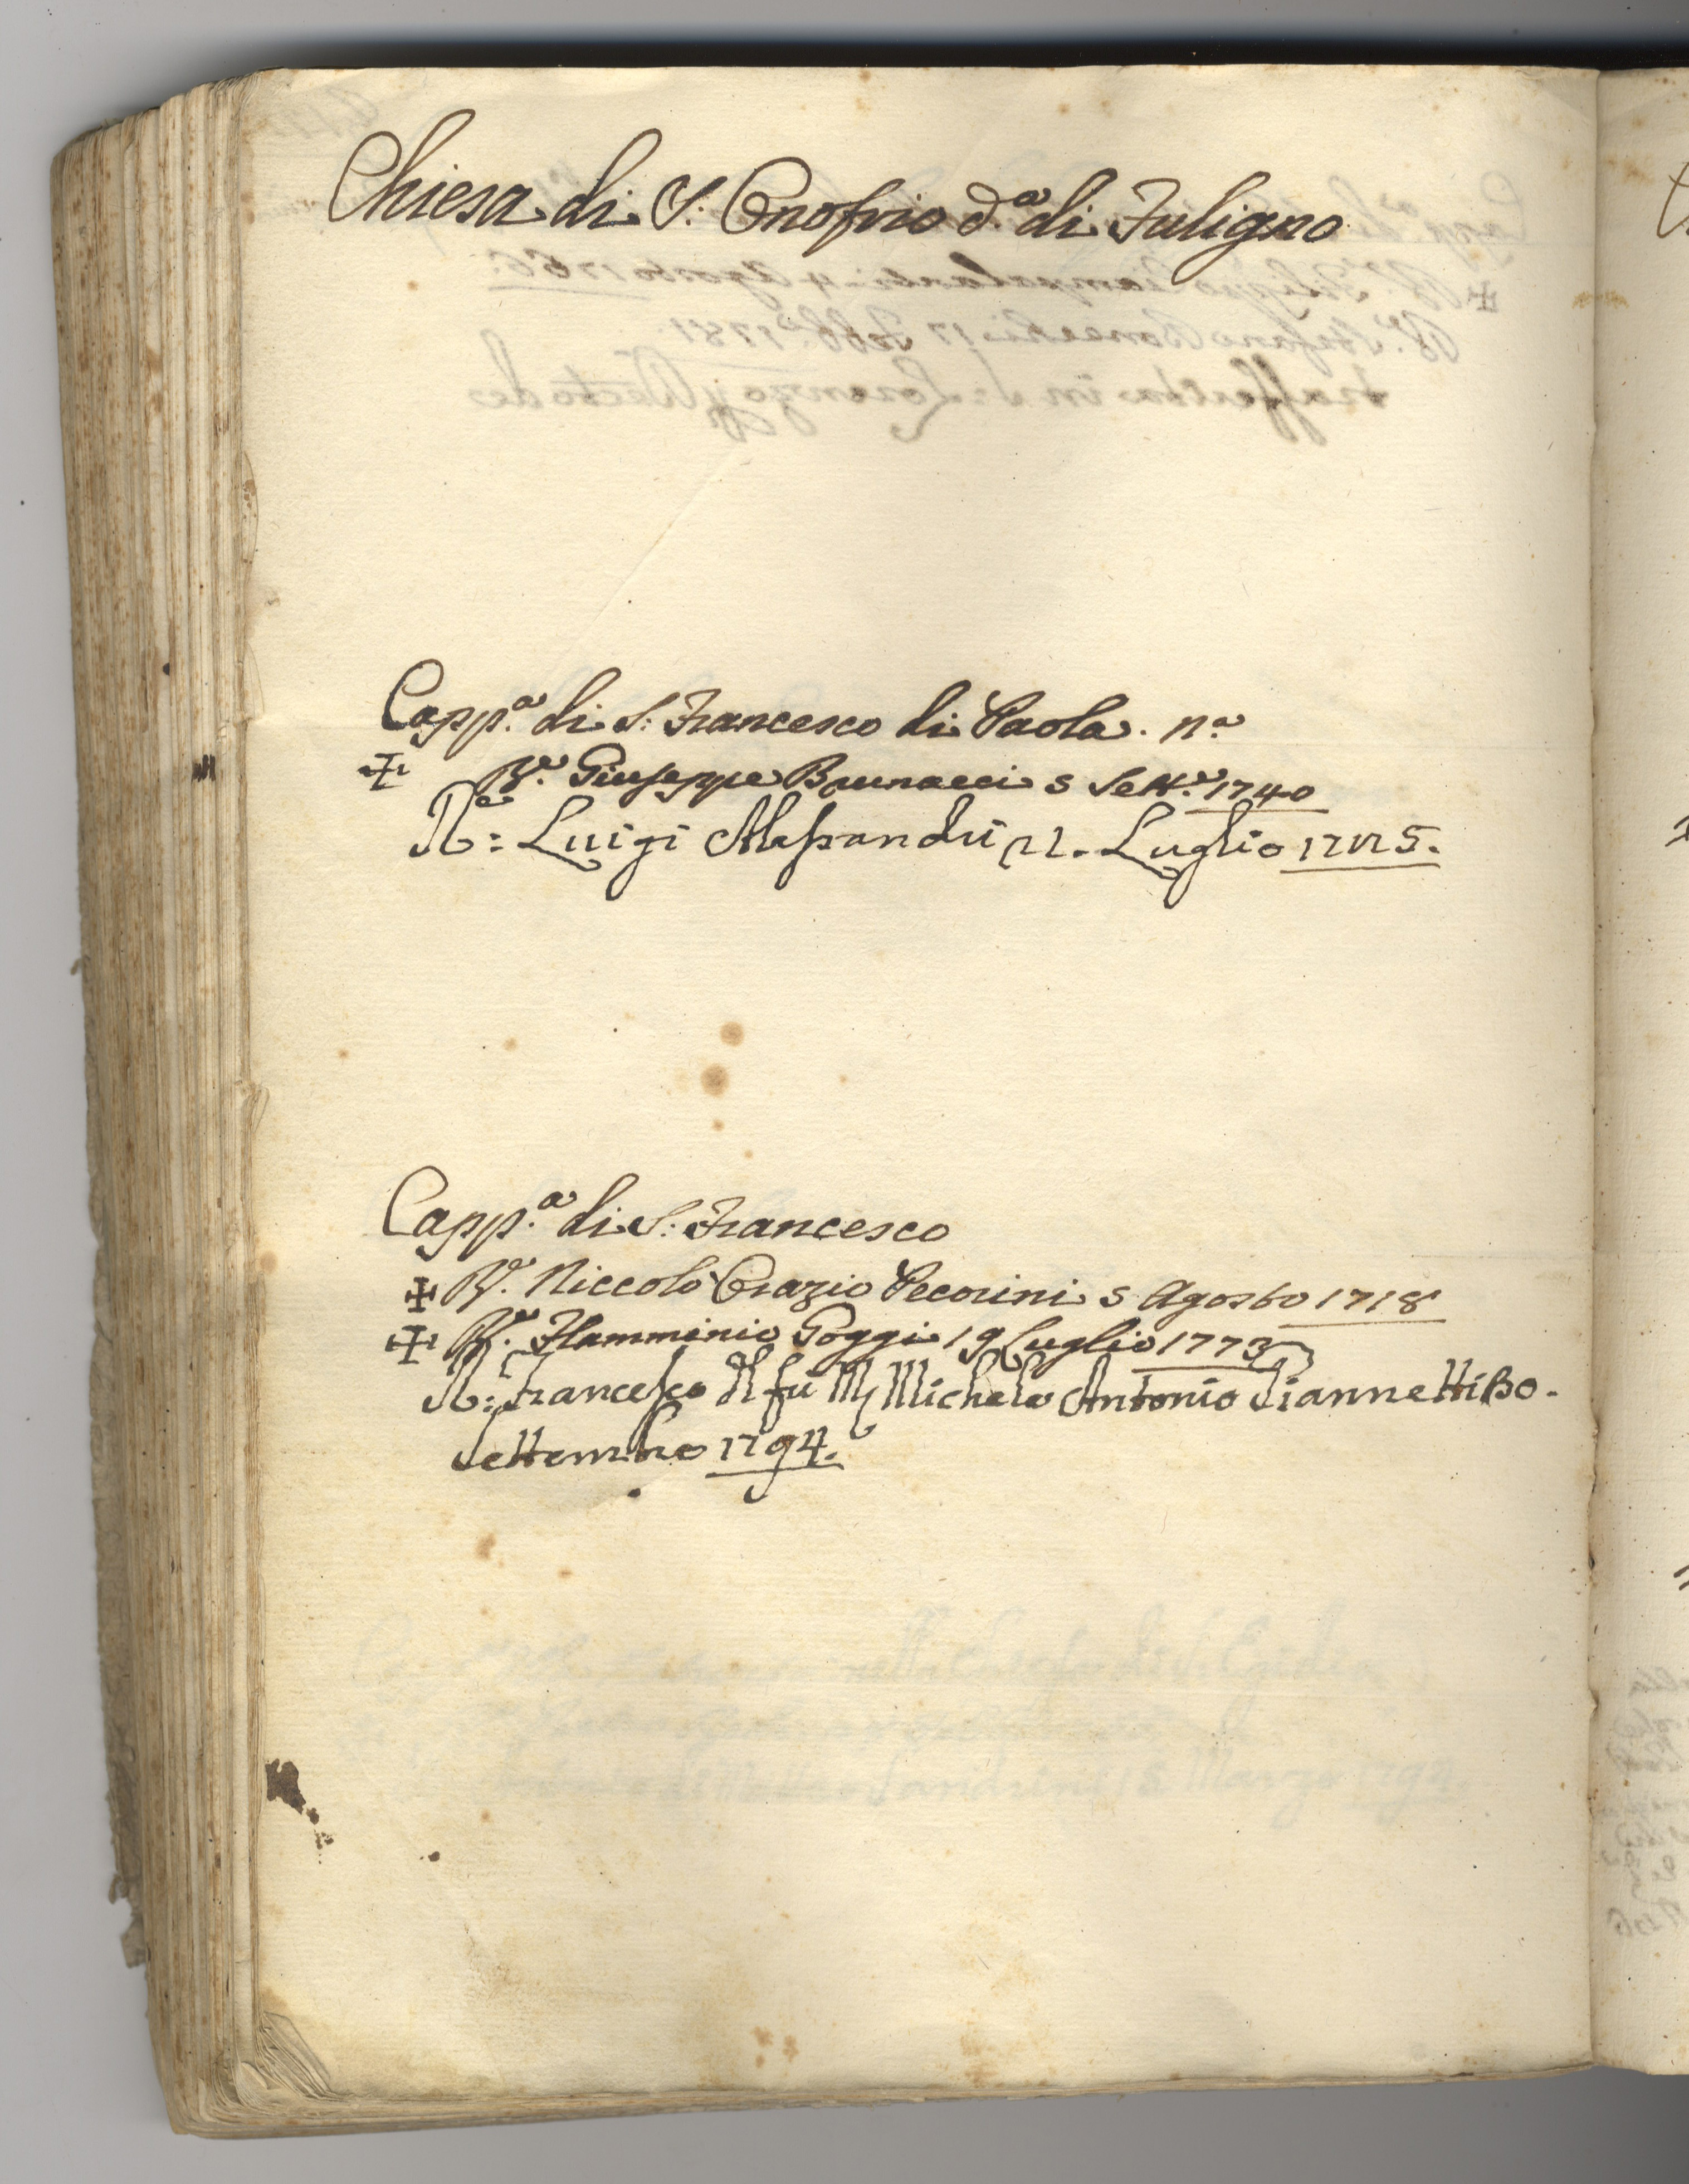 Chiesa di S: Onofrio d.ª di Fuligno
Capp.ª di S: Francesco di Paola. n.ª
✠ R.e Giuseppe Brunacci 5 Sett.e 1740
R.e: Luigi Alessandri 21. Luglio 1775.
Capp.ª di S: Francesco
✠ R.e Niccolò Orazio Pecorini 5 Agosto 1718
✠ R.e Flamminio Poggi 19 Luglio 1773
R: Francesco fu Michele Antonio Giannetti 30.
Settembre 1794.